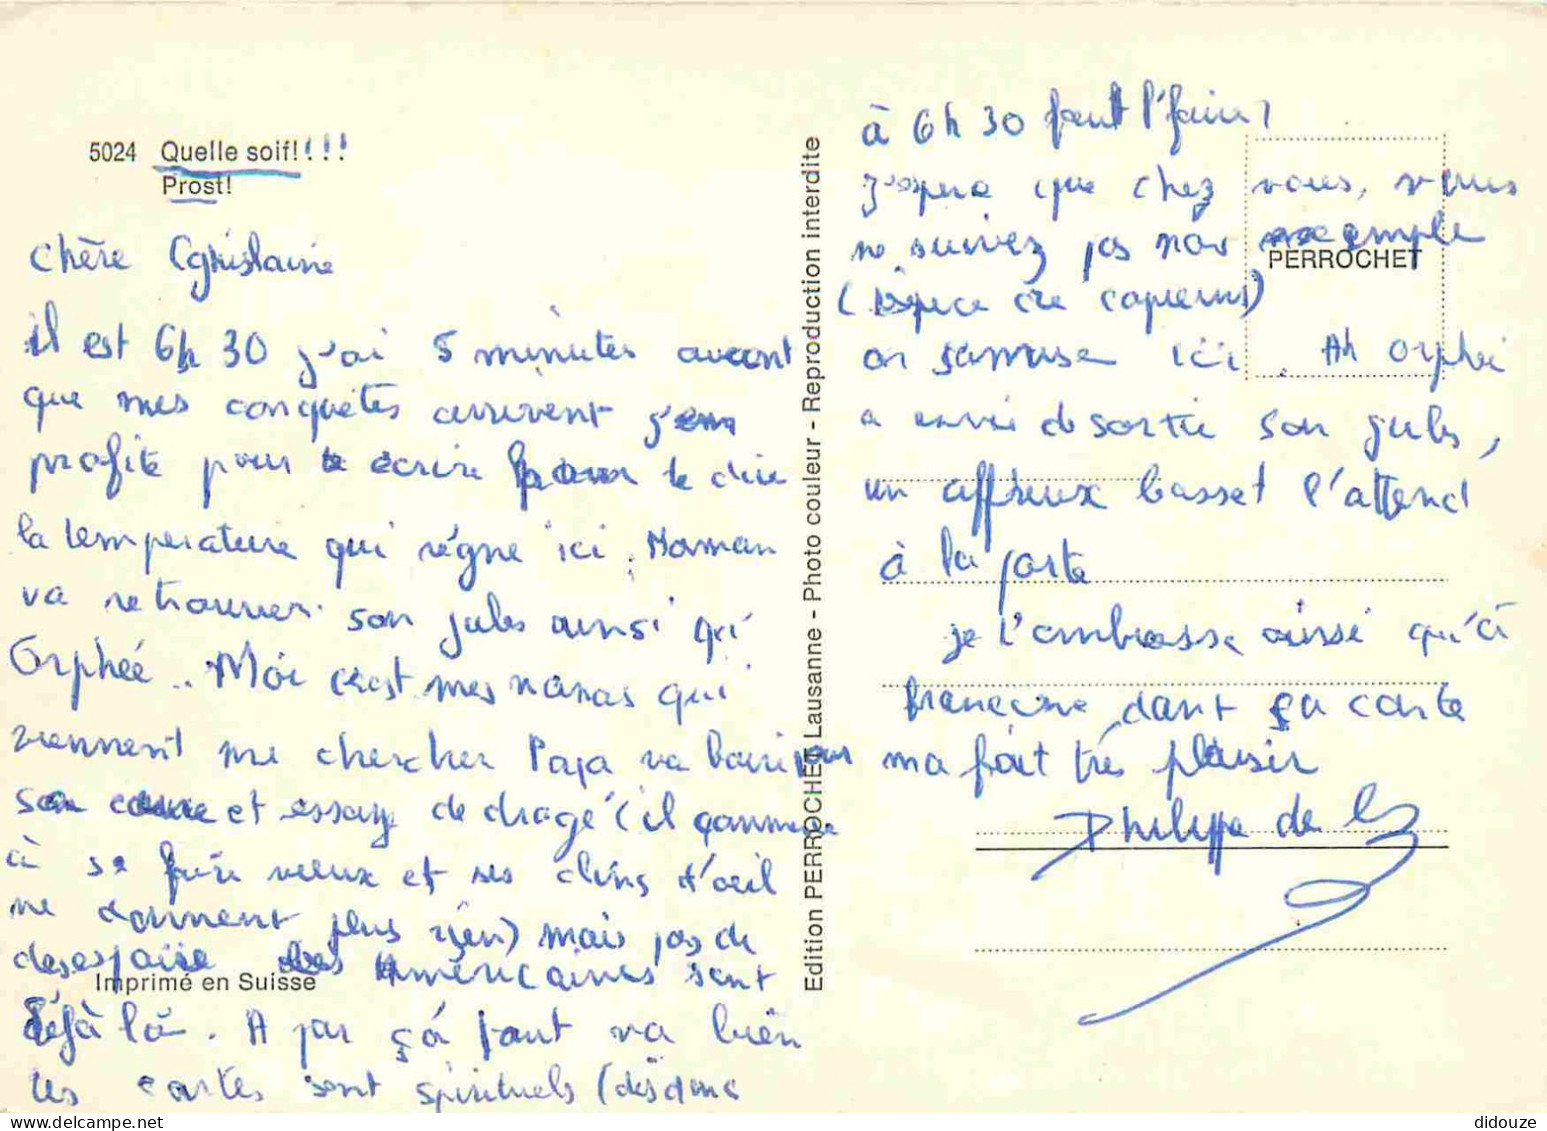 5024 Quelle soif!!!!
Prost!
chère Ghislaine
il est 6h30 j'ai 5 minutes avant
que mes conquêtes arrivent j'en
profite pour te écrire pour te dire
la temperature qui règne ici. Maman
va retrouver son jules ainsi qui
Orphéé.. Moi c'est mes nanas qui
viennent me chercher Papa va boire
et essaye de dragé (il commence
à se faire vieux et ses clins d'oeil
ne donnent plus rien) mais pas de
desespoire les Américaines sont
déjà là. A par çá tout va bien
les cartes sont spirituels (dis donc
Imprimé en Suisse
Edition PERROCHET Lausanne - Photo couleur - Reproduction interdite
à 6h30 faut l'faire)
j'espere que chez vous, vous
ne suivez pas notre exemple
PERROCHET
(espece de
on s'amuse ici. Ah Orphéi
a envie de sortir son jules,
un affreux basset l'attend
à la porte
je t'embrasse aussi qu'à
francoine dont ça carte
ma fait très plaisir
Philippe de
didouze